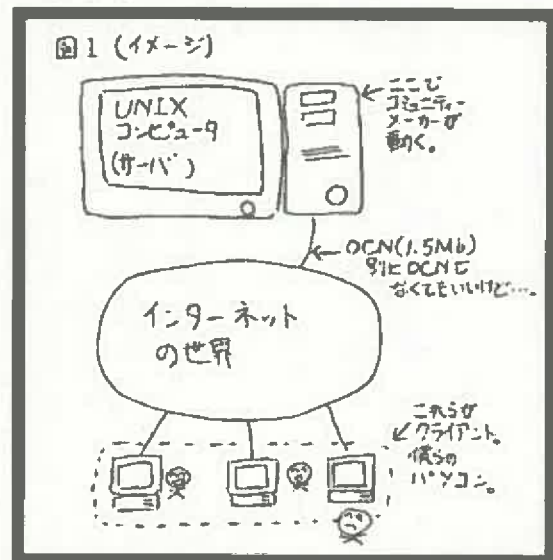 図1 (イメージ)
UNIX
コンピュータ
(サーバ)
ここで
コミュニティー
メーカーが
動く。
OCN(1.5Mb)
別にOCNじ
なくてもいいけど…。
インターネット
の世界
これらが
クライアント。
僕らの
パソコン。